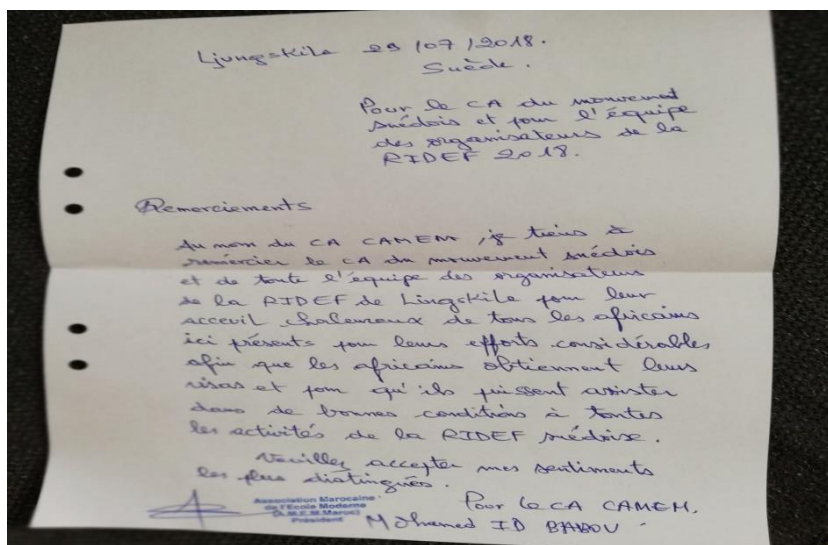 Ljungskile 29/07/2018.
Suède.
Pour le CA du mouvement
suédois et pour l'équipe
des organisateurs de la
RIDEF 2018.
Remerciements
Au nom du CA CAMEM, je tiens à
remercier le CA du mouvement suédois
et de toute l'équipe des organisateurs
de la RIDEF de Lingskile pour leur
acceuil chaleureux de tous les africains
ici présents pour leurs efforts considérables
afin que les africains obtiennent leurs
visas et pour qu'ils puissent assister
dans de bonnes conditions à toutes
les activités de la RIDEF suédoise.
Veuillez accepter mes sentiments
les plus distingués.
Pour le CA CAMEM.
Association Marocaine
de l'Ecole Moderne
(A.M.E.M.Maroc)
Président
Mohamed ID BABOU